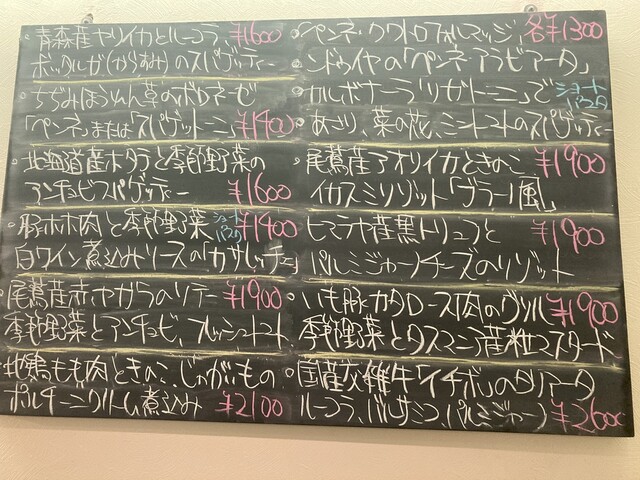 青森産ヤリイカとルーコラ ¥1600
ボッタルガ(からすみ)のスパゲッティー
ちぢみほうれん草のボロネーゼ
「ペンネ」または「スパゲットーニ」 ¥1400
北海道産ホタテと季節野菜の
アンチョビスパゲッティー ¥1600
豚ホホ肉と季節野菜 ショートパスタ ¥1400
白ワイン煮込みソースの「カサレッチェ」
尾鷲産赤ヤガラのソテー ¥1900
季節野菜とアンチョビ、フレッシュトマト
鶏もも肉ときのこ、じゃがいもの
ポルチーニクリーム煮込み ¥2100
ペンネ・クワトロフォルマッジ 各¥1300
ンドゥイヤの「ペンネ・アラビアータ」
カルボナーラ「リガトーニ」で ショートパスタ
あさり、菜の花、ミニトマトのスパゲッティー
尾鷲産アオリイカときのこ ¥1900
イカスミリゾット「ヴェネツィア風」
ヒマラヤ産黒トリュフと ¥1900
パルミジャーノチーズのリゾット
いも豚カタロース肉のグリル ¥1900
季節野菜とタスマニア産粒マスタード
国産交雑牛「イチボ」のタリアータ
ルーコラ、バルサミコ、パルミジャーノ ¥2600